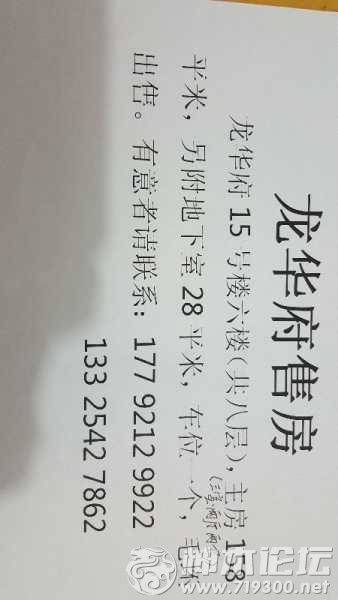 龙华府售房
龙华府15号楼六楼(共八层),主房158
平米,另附地下室28平米,车位一个,毛坯
出售。有意者请联系:177 9212 9922
133 2542 7862
神木论坛
www.719300.net